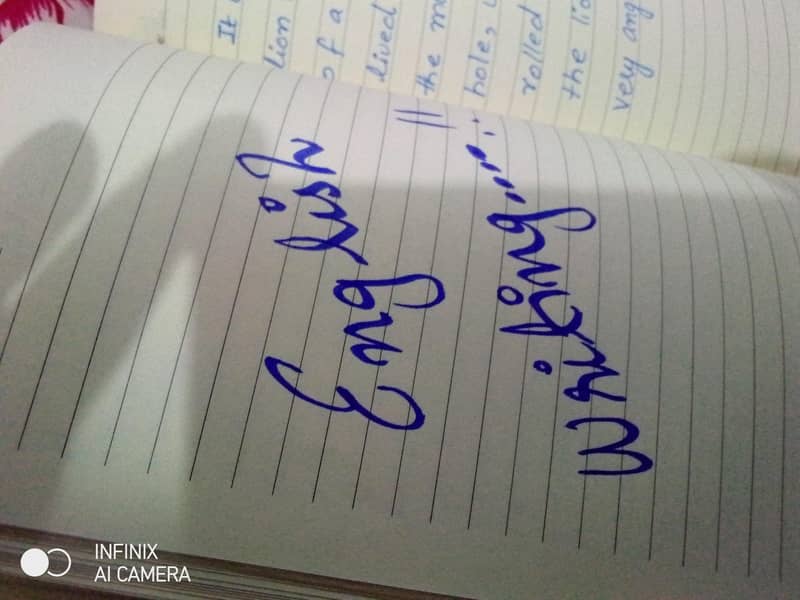 It
lion
of a
lived
the mo
hole,
rolled
the lio
very ang
English
Writing....
INFINIX
AI CAMERA